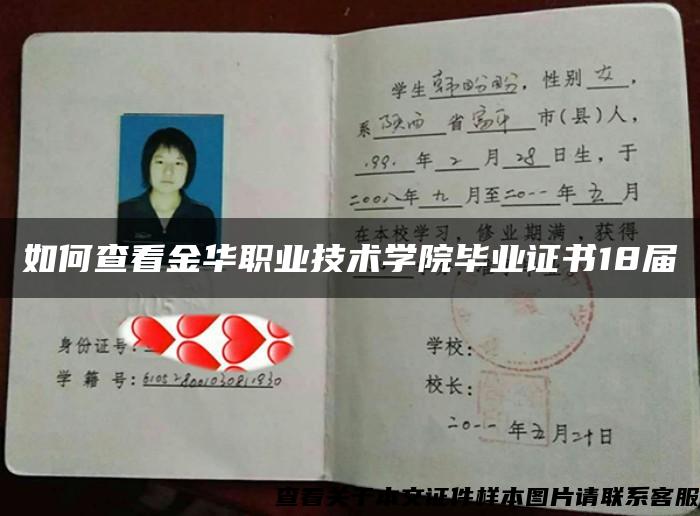 学生韩盼盼，性别女，
系陕西省富平市(县)人，
1991年2月28日生，于
二00八年九月至二0一一年五月
在本校学习，修业期满，获得
如何查看金华职业技术学院毕业证书18届
身份证号:
学籍号:
学校:
校长:
二0一一年五月二十日
查看关于本文证件样本图片请联系客服